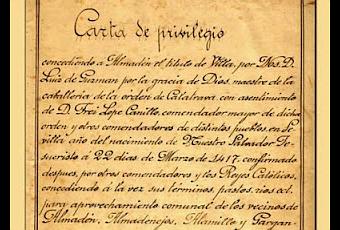 Carta de privilegio
concediendo a Almadén el título de Villa, por Dos. D.
Luiz de Guzman por la gracia de Dios, maestre de la
caballeria de la orden de Calatrava con asentimiento
de D. Frei Lope Canillo, comendador mayor de dicha
orden y otros comendadores de distintos pueblos, en Se-
villa año del nacimiento de Nuestro Salvador Je-
sucristo á 22 dias de Marzo de 1417, confirmado
despues, por otros comendadores y los Reyes Católicos,
concediendo á la vez sus términos, pastos, rios &.
para aprovechamiento comunal de los vecinos de
Almadén, Almadenejos, Alamillo y Gargan-